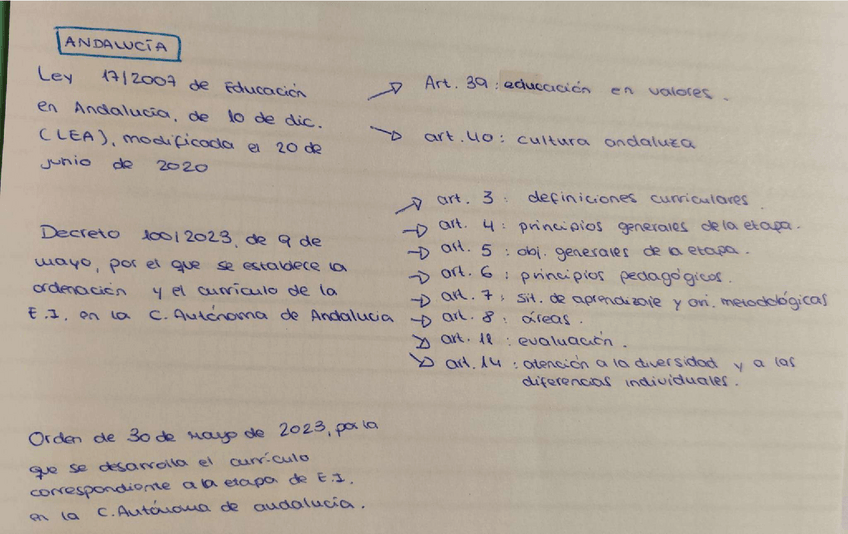 ANDALUCÍA
Ley 17/2007 de Educación
en Andalucía, de 10 de dic.
(LEA), modificada el 20 de
junio de 2020
Art. 39: educación en valores.
art. 40: cultura andaluza
Decreto 100/2023, de 9 de
mayo, por el que se establece la
ordenación y el currículo de la
E.I. en la C. Autónoma de Andalucía
art. 3: definiciones curriculares.
art. 4: principios generales de la etapa.
art. 5: obj. generales de la etapa.
art. 6: principios pedagógicos.
art. 7: sit. de aprendizaje y ori. metodológicas
art. 8: áreas.
art. 12: evaluación.
art. 14: atención a la diversidad y a las
diferencias individuales.
Orden de 30 de Mayo de 2023, por la
que se desarrolla el currículo
correspondiente a la etapa de E.I.
en la C. Autónoma de andalucía.